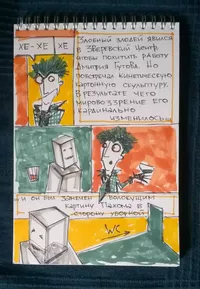 ХЕ - ХЕ ХЕ
Злобный злодей явился
в Зверевский Центр
чтобы похитить работу
Дмитрия Гутова. Но
повстречал кинетическую
картонную скульптуру.
В результате чего
мировоззрение его
кардинально
изменилось...
и он был замечен волокущим
картину Пахома в
сторону уборной
WC